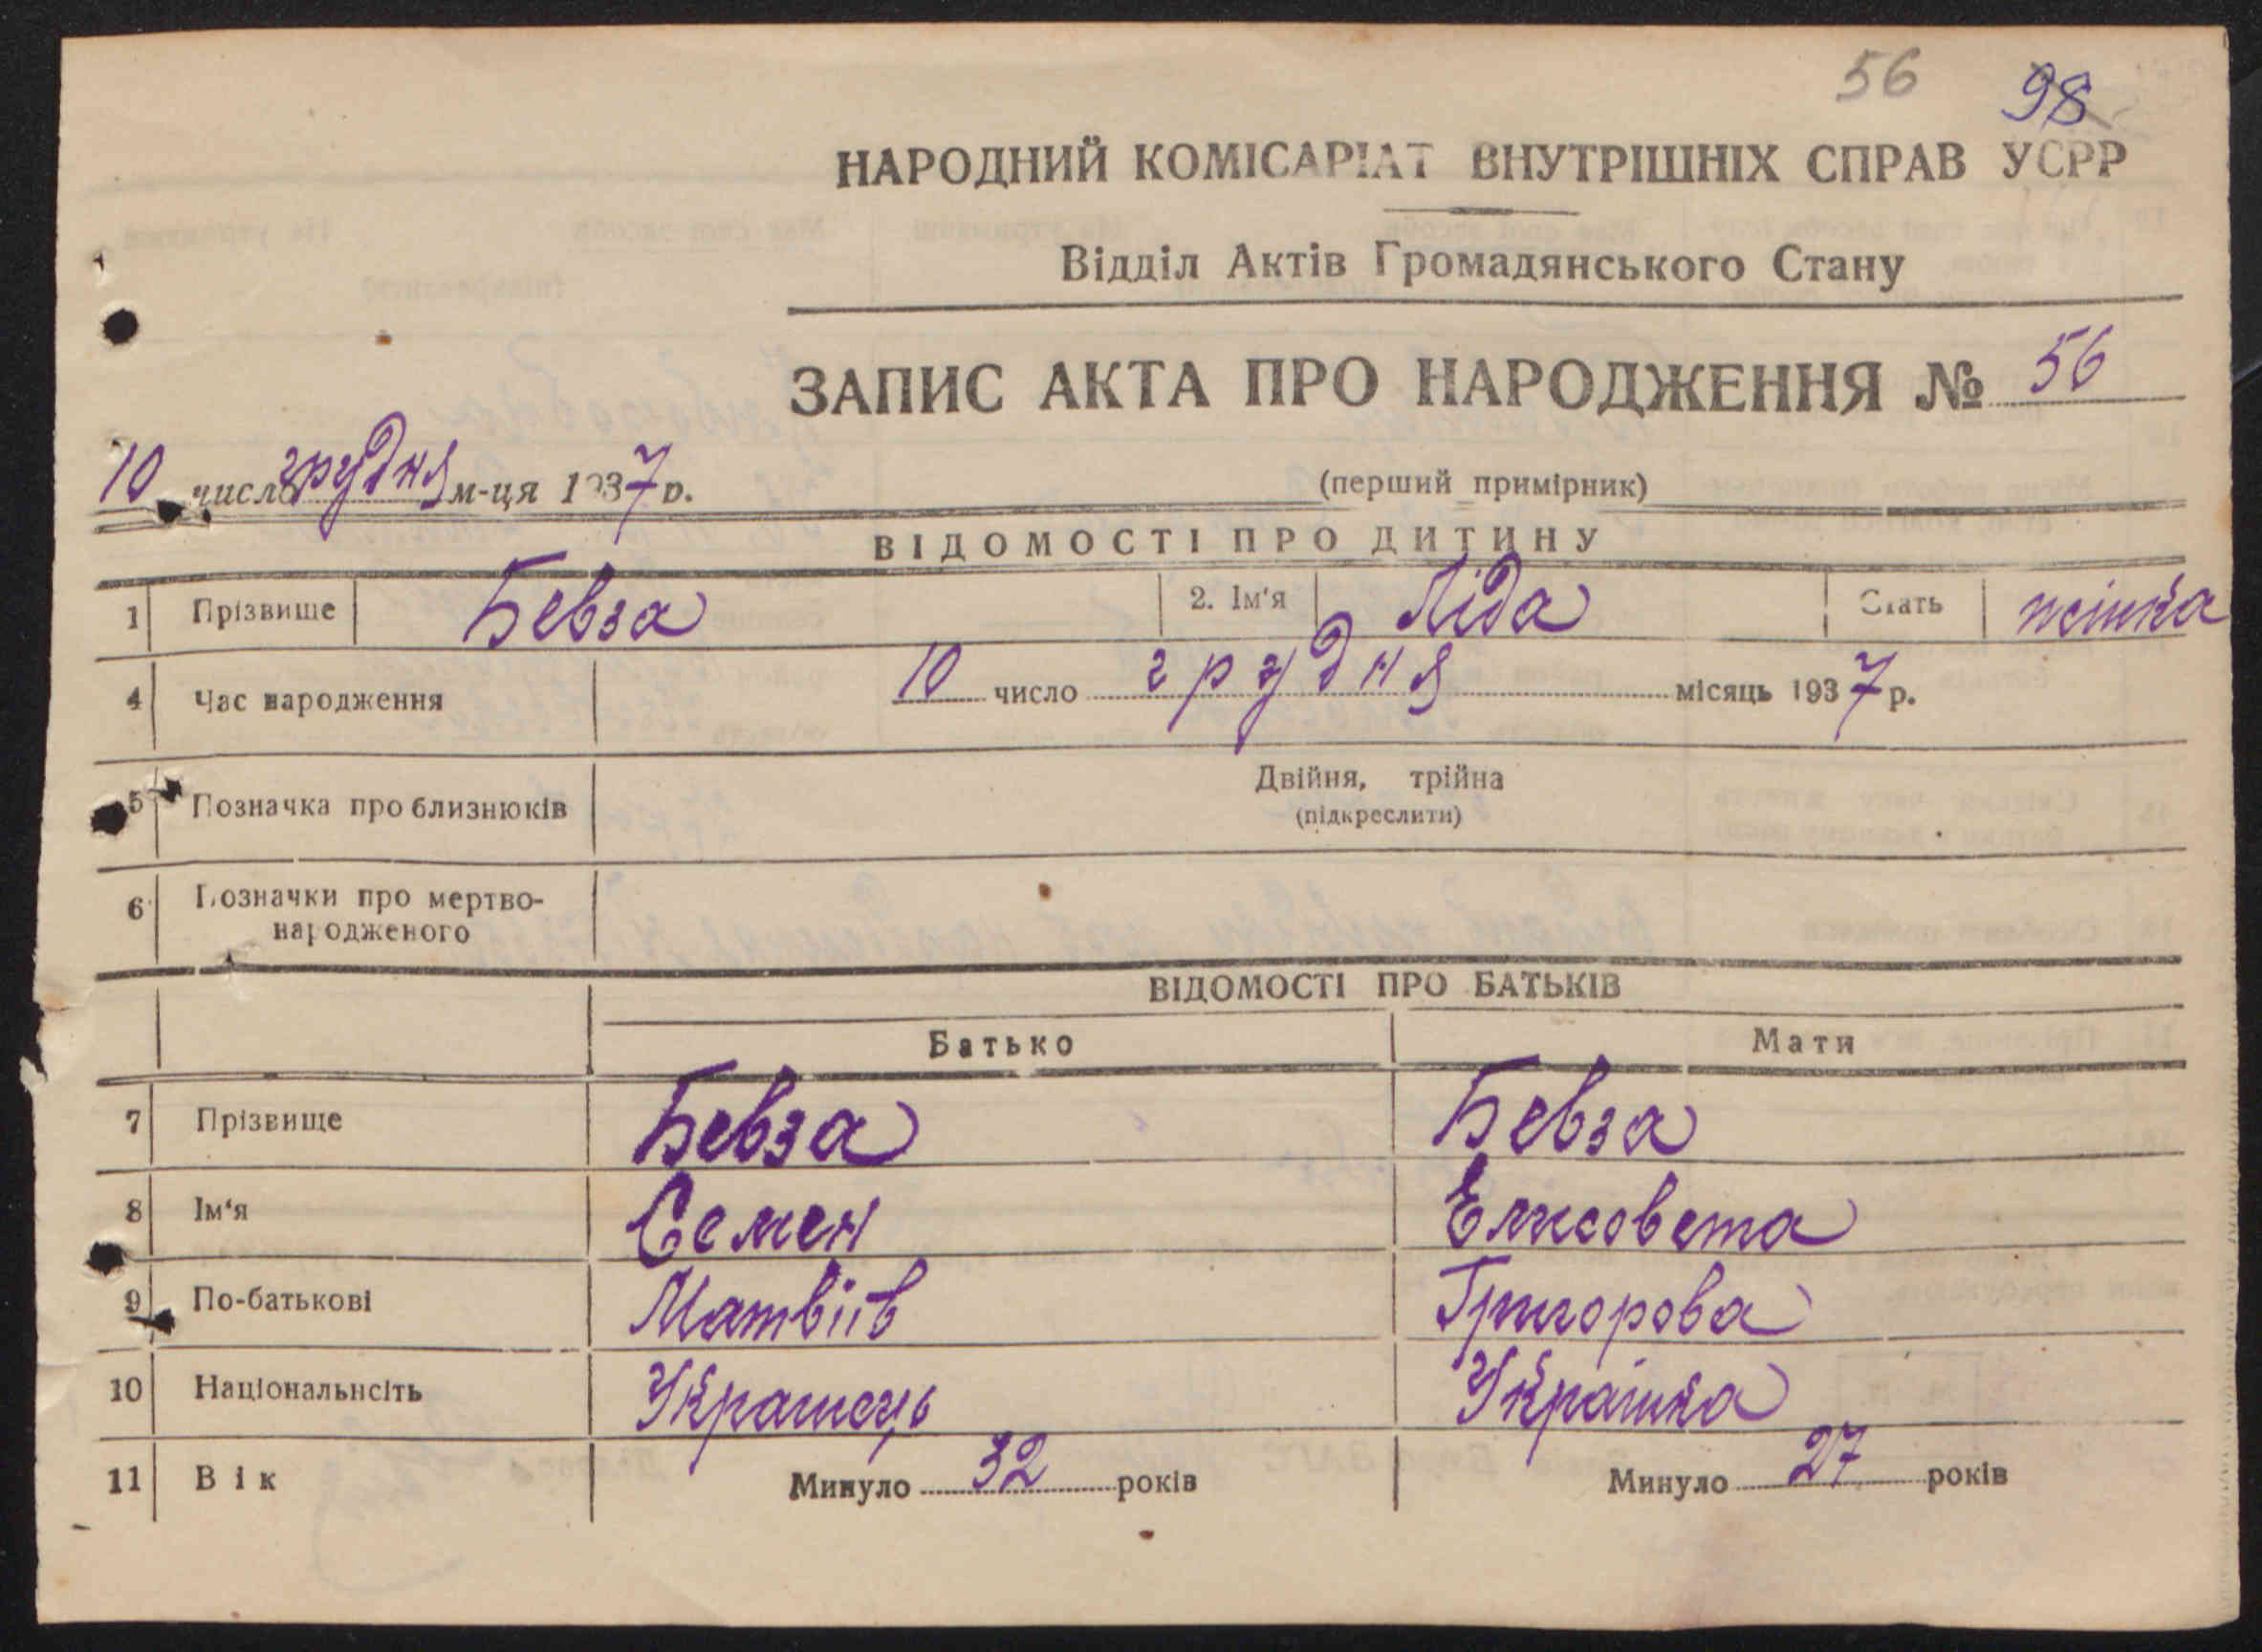 56 98
НАРОДНИЙ КОМІСАРІАТ ВНУТРІШНІХ СПРАВ УСРР
Відділ Актів Громадянського Стану
ЗАПИС АКТА ПРО НАРОДЖЕННЯ № 56
10 число грудня м-ця 1937 р. (перший примірник)
ВІДОМОСТІ ПРО ДИТИНУ
1 Прізвище Бевза 2. Ім'я Ліда Стать жінка
4 Час народження 10 число грудня місяць 1937 р.
5 Позначка про близнюків Двійня, трійна
(підкреслити)
6 Позначки про мертво-
народженого
ВІДОМОСТІ ПРО БАТЬКІВ
Батько Мати
7 Прізвище Бевза Бевза
8 Ім'я Семен Елисовета
9 По-батькові Матвіів Григорова
10 Національнсіть Украінець Украінка
11 Вік Минуло 32 років Минуло 27 років